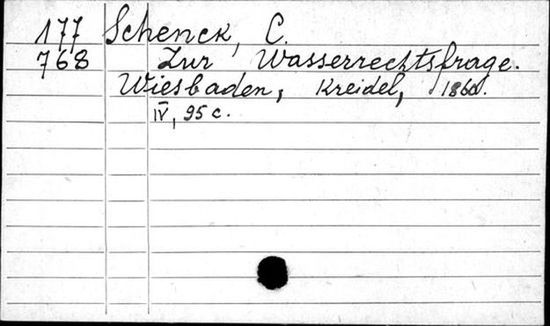 177 Schenck, C.
768 Zur Wasserrechtsfrage.
Wiesbaden, Kreidel, 1860.
IV, 95 c.